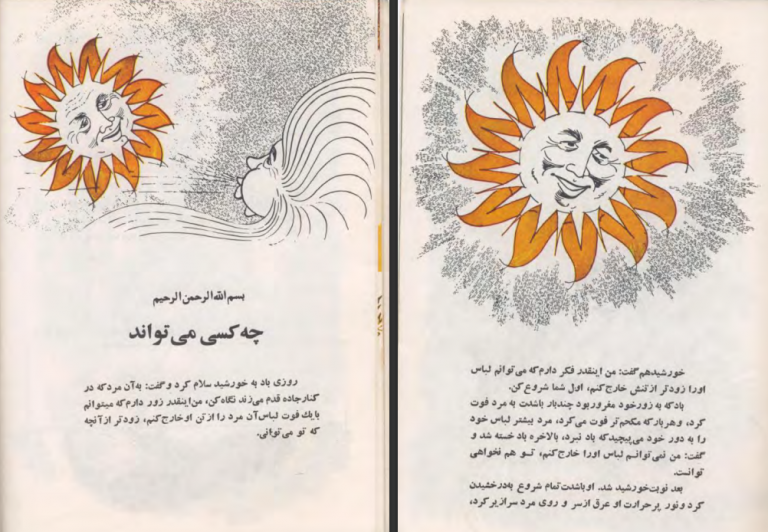 بسم الله الرحمن الرحیم
چه کسی می تواند
روزی باد به خورشید سلام کرد و گفت: به آن مرد که در
کنار جاده قدم می زند نگاه کن، من اینقدر زور دارم که میتوانم
با یک فوت لباس آن مرد را از تن او خارج کنم، زودتر از آنچه
که تو می توانی.
خورشید هم گفت: من اینقدر فکر دارم که می توانم لباس
او را زودتر از تنش خارج کنم، اول شما شروع کن.
باد که به زور خود مغرور بود چندبار باشدت به مرد فوت
کرد، و هر بار که محکم تر فوت می کرد، مرد بیشتر لباس خود
را به دور خود می پیچید که باد نبرد، بالاخره باد خسته شد و
گفت: من نمی توانم لباس او را خارج کنم، تو هم نخواهی
توانست.
بعد نوبت خورشید شد. او باشدت تمام شروع به درخشیدن
کرد و نور پر حرارت او عرق از سر و روی مرد سرازیر کرد،